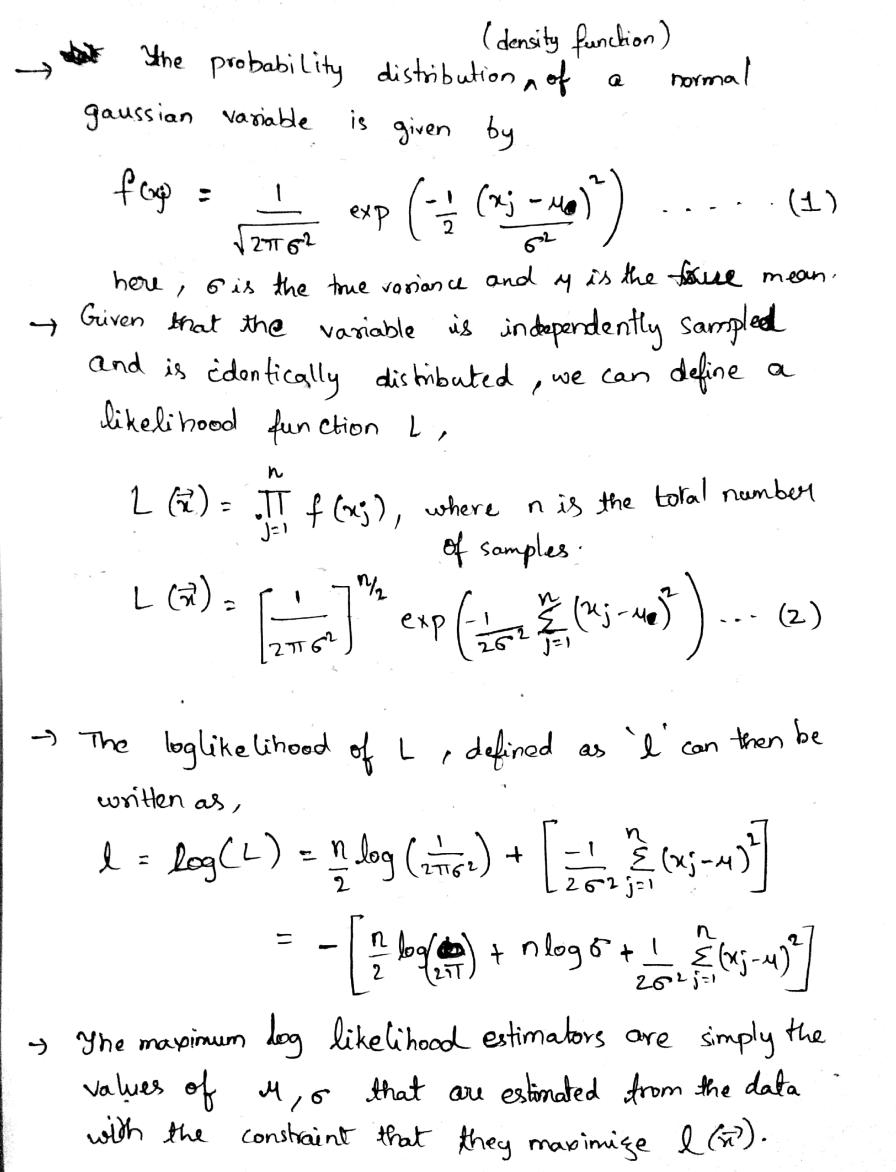 (density function)
→ The probability distribution ^ of a normal
gaussian variable is given by
f(xj) = 1/√(2πσ²) exp (-1/2 (xj - μ)²/σ²) ...... (1)
here, σ is the true variance and μ is the true mean.
→ Given that the variable is independently sampled
and is identically distributed, we can define a
likelihood function L,
L(x⃗) = ∏_{j=1}^{n} f(xj), where n is the total number
of samples.
L(x⃗) = [1/(2πσ²)]^{n/2} exp (-1/(2σ²) Σ_{j=1}^{n} (xj - μ)²) ... (2)
→ The loglikelihood of L, defined as 'l' can then be
written as,
l = log(L) = n/2 log (1/(2πσ²)) + [-1/(2σ²) Σ_{j=1}^{n} (xj - μ)²]
= - [n/2 log(2π) + n log σ + 1/(2σ²) Σ_{j=1}^{n} (xj - μ)²]
→ The maximum log likelihood estimators are simply the
values of μ, σ that are estimated from the data
with the constraint that they maximize l(x⃗).